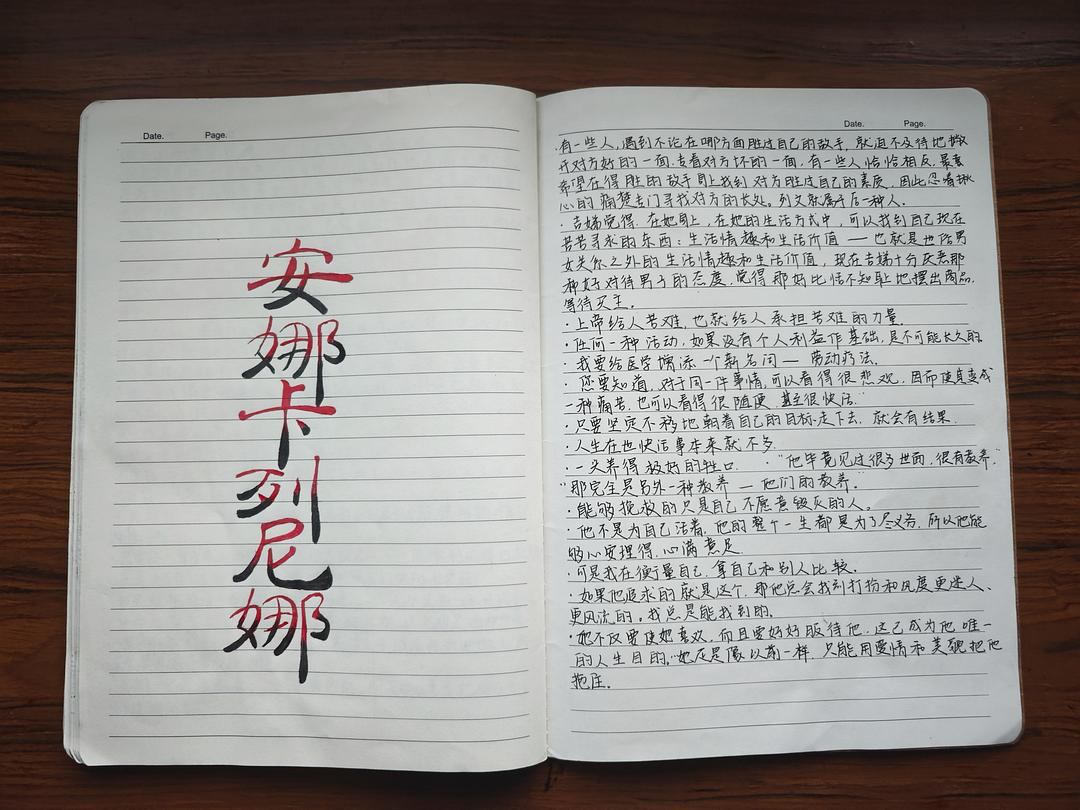 Date.
Page.
安
娜
卡
列
尼
娜
Date.
Page.
·有一些人,遇到不论在哪方面胜过自己的敌手,就迫不及待地撇
开对方好的一面,去看对方坏的一面,有一些人恰恰相反,最素
希望在得胜的敌手身上找到对方胜过自己的素质,因此忍着揪
心的痛楚去门寻找对方的长处。列文就属于后一种人.
·吉娣觉得,在她身上,在她的生活方式中,可以找到自己现在
苦苦寻求的东西:生活情趣和生活价值 — 也就是世俗男
女关系之外的生活情趣和生活价值,现在吉娣十分厌恶那
种好对待男子的态度,觉得那好比恬不知耻地摆出商品,
等待买主。
·上帝给人苦难,也就给人承担苦难的力量.
·任何一种活动,如果没有个人利益作基础,是不可能长久的.
·我要给医学增添一个新名词 — 劳动疗法.
·您要知道,对于同一件事情,可以看得很悲观,因而使其变成
一种痛苦,也可以看得很随便 甚至很快活."
·只要坚定不移地朝着自己的目标走下去,就会有结果.
·人生在世快活事本来就不多.
·一头养得极好的牲口. ·"他毕竟见过很多世面,很有教养."
"那完全是另外一种教养 — 他们的教养."
·能够挽救的只是自己不愿意毁灭的人。
·他不是为自己活着,他的整个一生都是为了尽义务,所以他能
够心安理得,心满意足.
·可是我在衡量自己,拿自己和别人比较.
·如果他追求的就是这个,那他总会找到打扮和风度更迷人、
更风流的。我总是能找到的.
·她不仅要使她喜欢,而且要好好服侍他,这已成为他唯一
的人生目的."她还是像以前一样,只能用爱情和美貌把他
拖住.